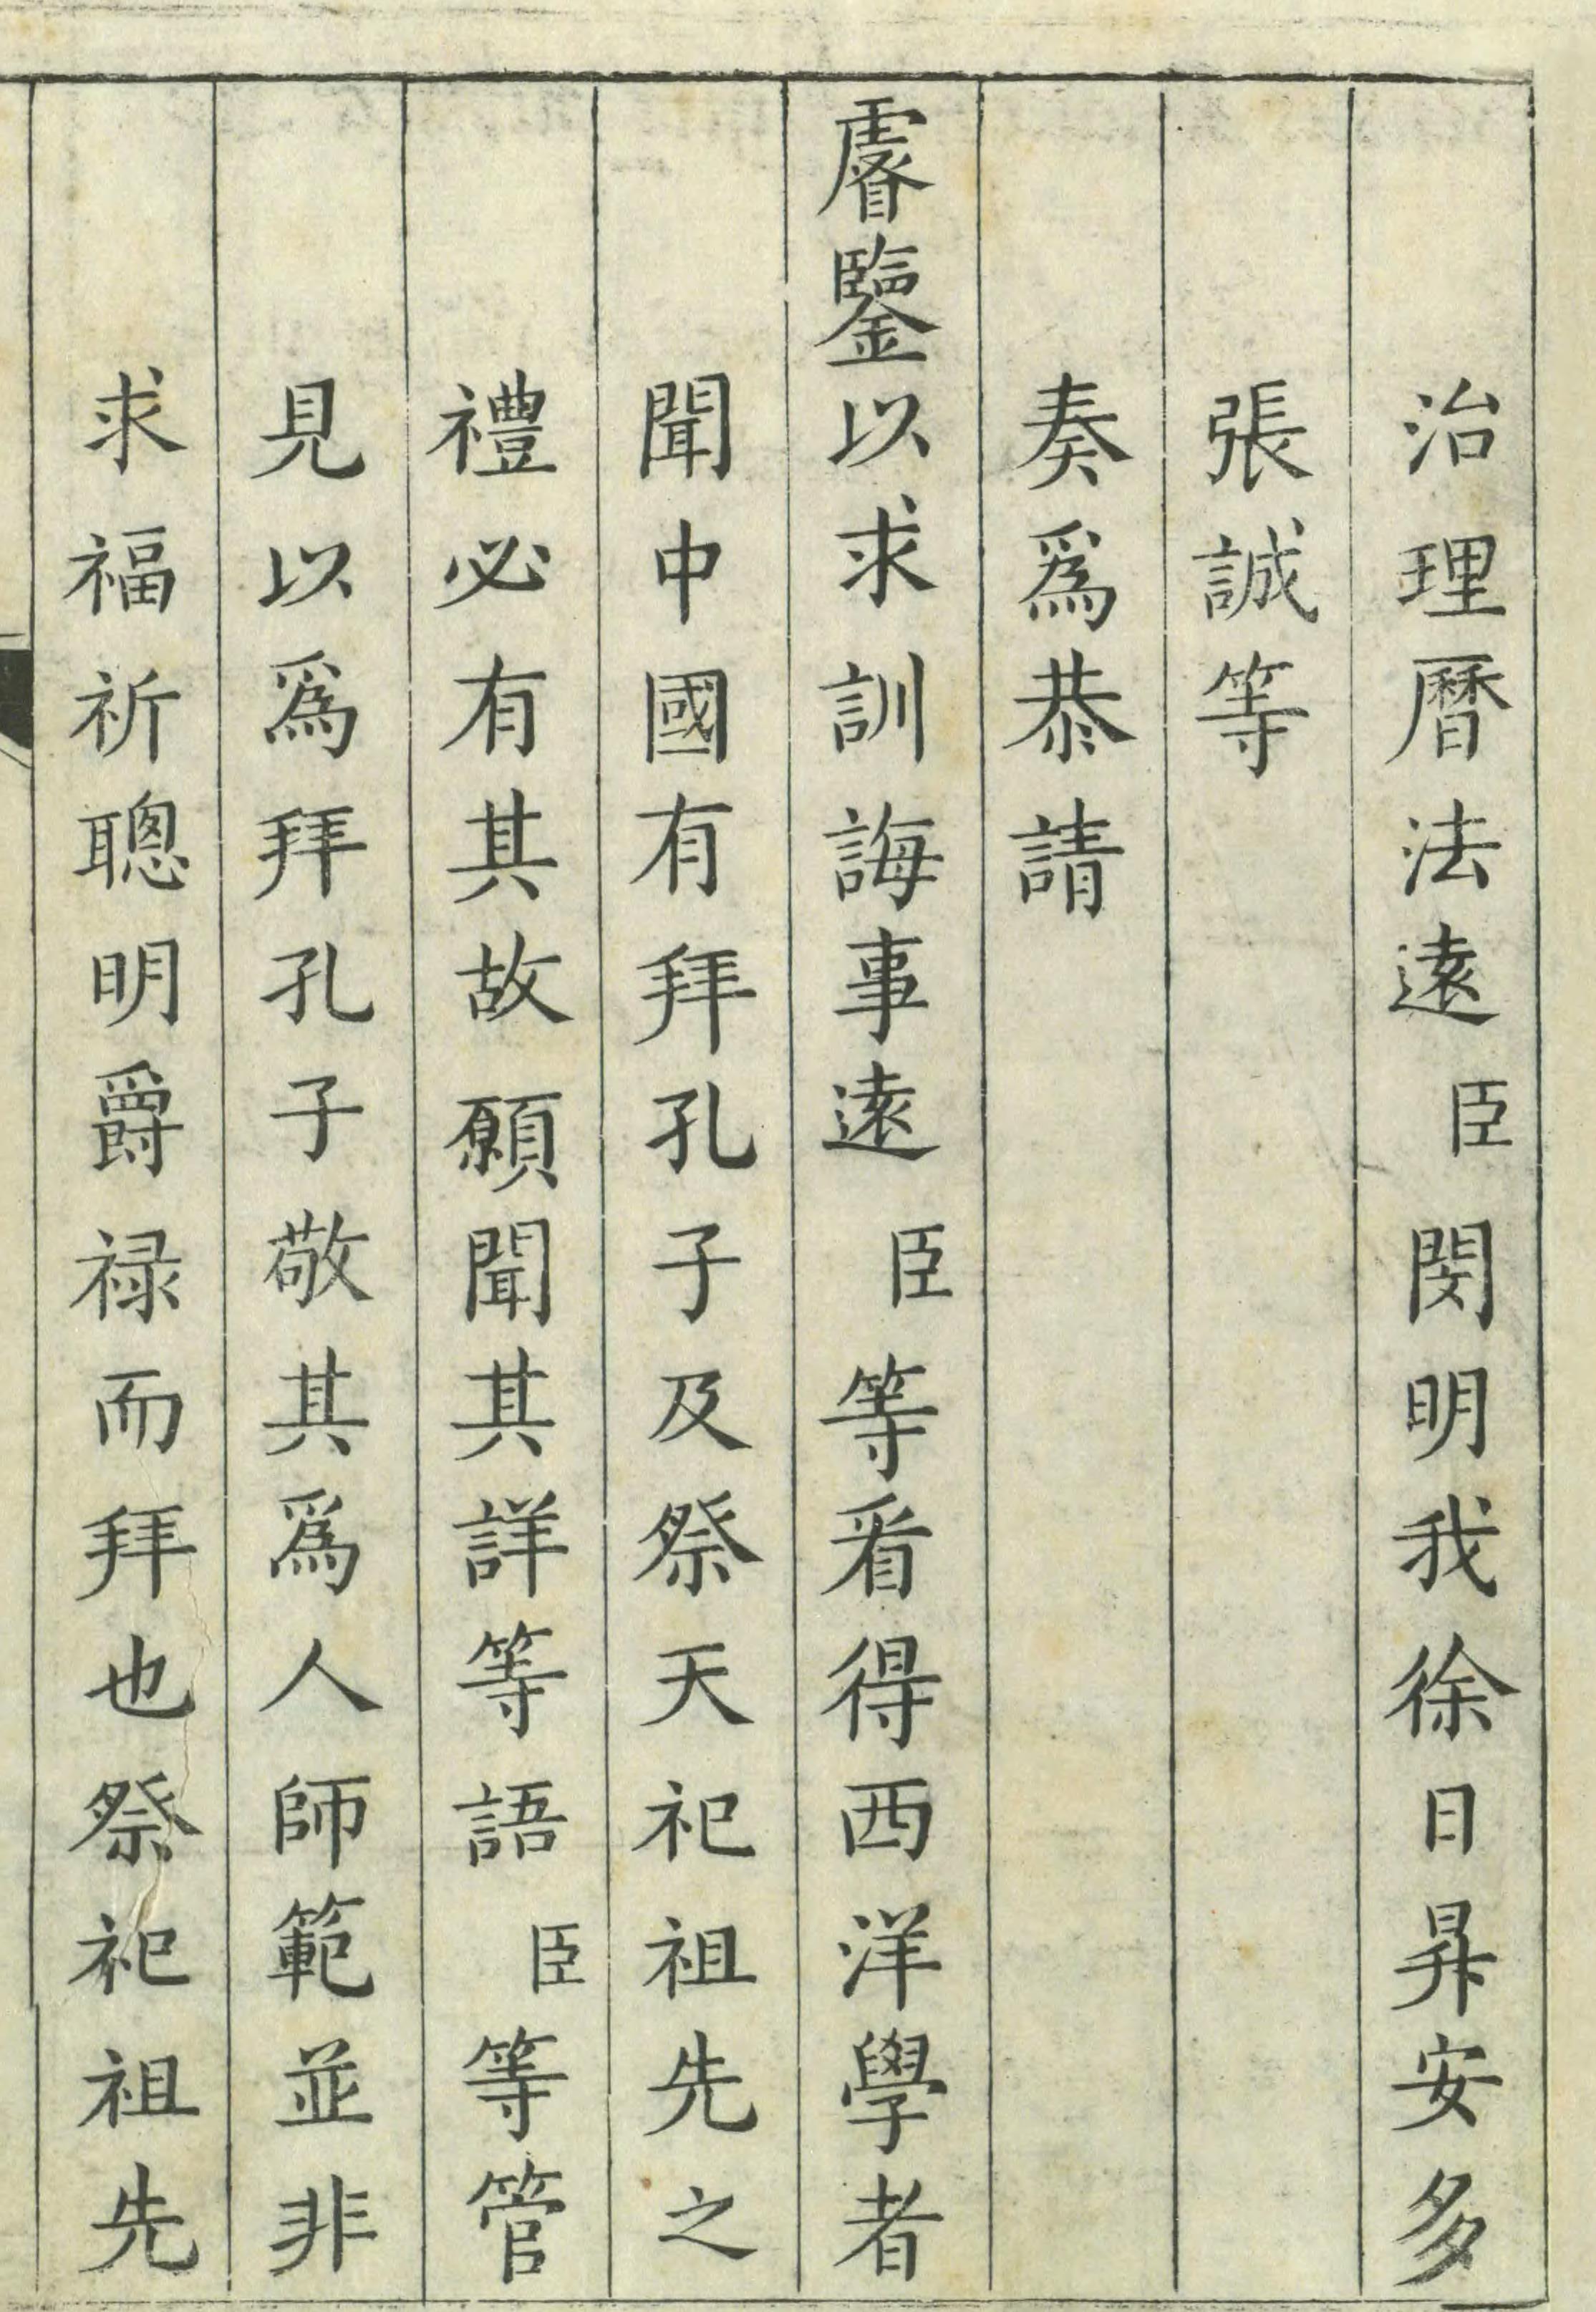 治理曆法遠臣閔明我徐日昇安多
張誠等
奏爲恭請
睿鑒以求訓誨事遠臣等看得西洋學者
聞中國有拜孔子及祭天祀祖先之
禮必有其故願聞其詳等語臣等管
見以爲拜孔子敬其爲人師範並非
求福祈聰明爵祿而拜也祭祀祖先